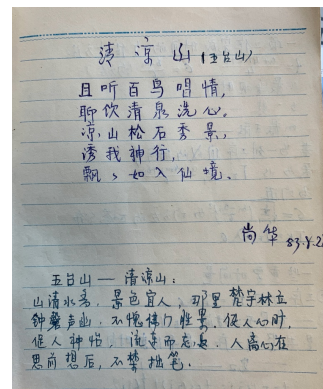 清凉山(五台山)
且听百鸟唱情,
聊饮清泉洗心。
凉山松石秀景,
诱我神行,
飘飘如入仙境。
尚华 83.
五台山——清凉山:
山清水秀,景色宜人,那里梵宇林立
钟磬声幽,不愧佛门胜景,使人心
使人神怡,流连而忘返。人离心在
思前想后,不禁拙笔。